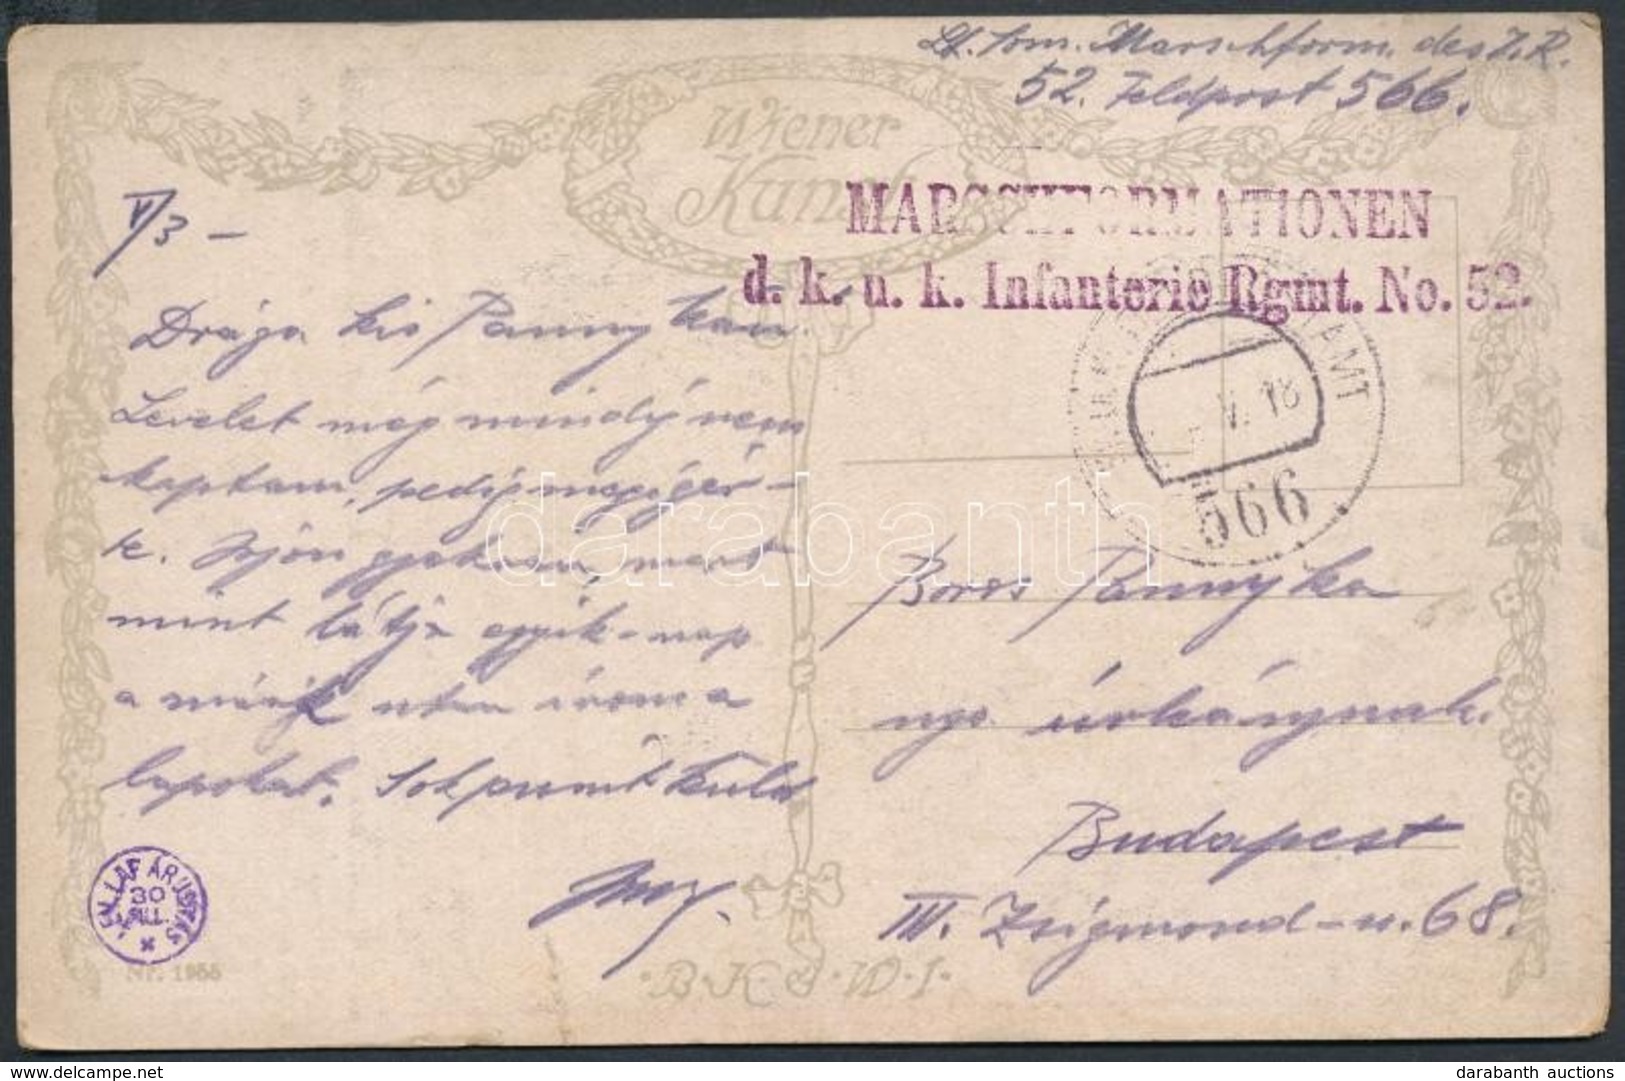 Marschform. des I. R.
52. Feldpost 566.
Wiener
Kunst
MARSCHFORMATIONEN
d. k. u. k. Infanterie Rgmt. No. 52.
V/3 –
V. 18
566
Drága kis Pannykám
Levelet még mindíg nem
kaptam, pedig megigér-
te. Írjon gyakran, mert
mint látja egyik nap
a másik után írom a
lapokat. Sok puszit küld
Boros Pannyka
úrleánynak.
Budapest
III. Zsigmond-u. 68.
30
FILL.
Nr. 1955
B.K.W.I.
darabanth
darabanth auctions